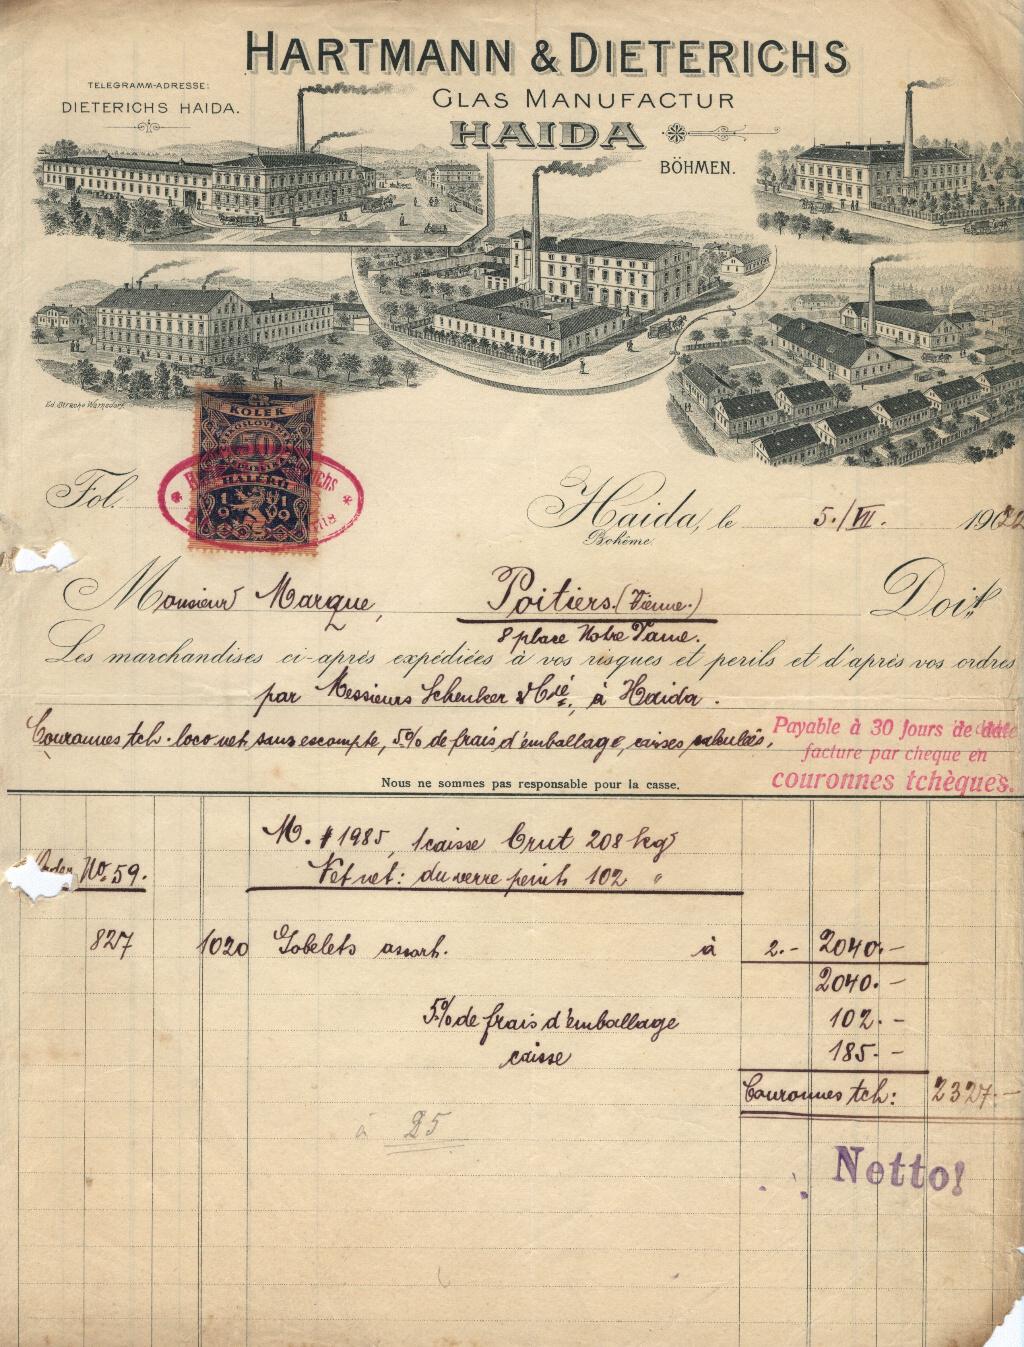 HARTMANN & DIETERICHS
TELEGRAMM-ADRESSE:
DIETERICHS HAIDA.
GLAS MANUFACTUR
HAIDA
BÖHMEN.
Ed. Strache Warnsdorf
KOLEK
50
HALÉŘŮ
1919
Fol.
Haida, le 5./VII. 1922
Bohême.
Monsieur Marque, Poitiers. (Vienne.) Doit
8 place Notre Dame.
Les marchandises ci-après expédiées à vos risques et perils et d'après vos ordres
par Messieurs Schenker & Cié, à Haida.
Couronnes tch. loco net, sans escompte, 5% de frais d'emballage, caisses calculées,
Payable à 30 jours de date
facture par cheque en
couronnes tchèques.
Nous ne sommes pas responsable pour la casse.
M. # 1985, 1 caisse Brut 208 kgs
Order No. 59. Net net: du verre peint 102 "
827 1020 Gobelets assort. à 2.- 2040.-
2040.-
5% de frais d'emballage 102.-
caisse 185.-
Couronnes tch: 2327.-
à 25
Netto!